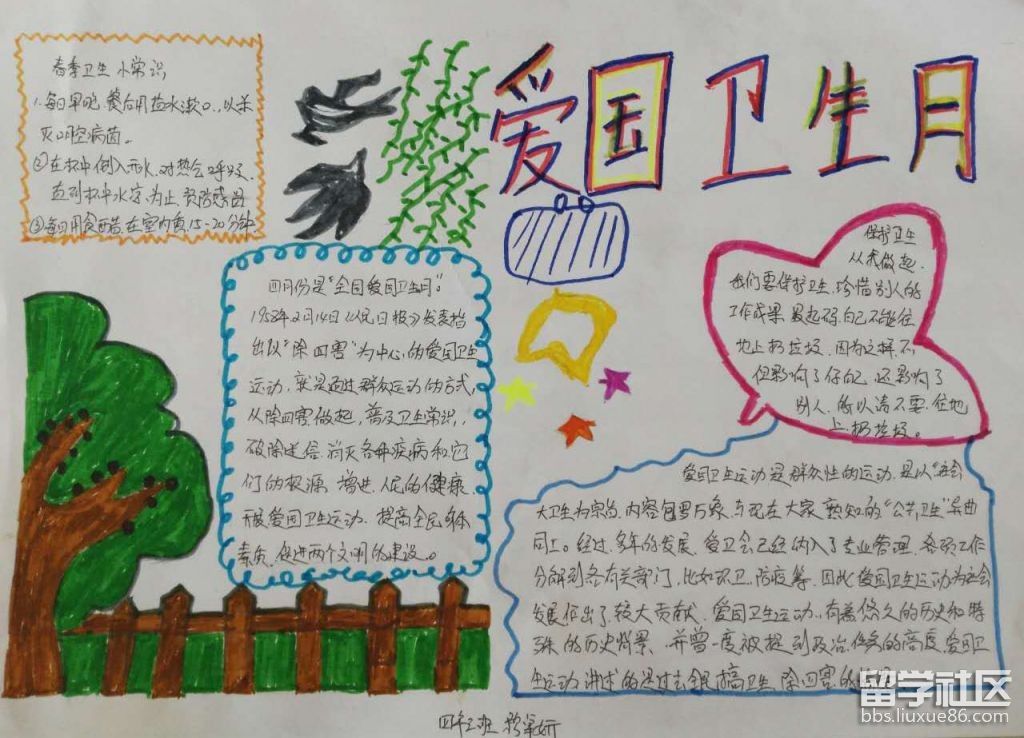 爱国卫生月
春季卫生小常识
1.每日早晚、餐后用盐水漱口,以杀
灭口腔病菌。
②在杯中倒入开水,对热会呼吸,
直到杯中水凉为止,预防感冒
③每日用食醋在室内熏15-20分钟
四月份是“全国爱国卫生月”。
1958年2月14日《人民日报》发表指
出以“除四害”为中心的爱国卫生
运动,就是通过群众运动的方式,
从除四害做起,普及卫生常识,
破除迷信消灭各种疾病和它
们的根源增进人民的健康,
开展爱国卫生运动,提高全民身体
素质,促进两个文明的建设。
保护卫生
从我做起
我们要保护卫生,珍惜别人的
工作成果最起码自己不能往
地上扔垃圾,因为这样不
但影响了自己,还影响了
别人,所以请不要往地
上扔垃圾。
爱国卫生运动是群众性的运动,是以“社会
大卫生为宗旨,内容包罗万象与现在大家熟知的“公共卫生”异曲
同工。经过多年的发展,爱卫会已经纳入了专业管理,各项工作
分解到各有关部门,比如环卫,防疫等,因此爱国卫生运动为社会
发展作出了较大贡献,爱国卫生运动,有着悠久的历史和特
殊的历史背景,并曾一度被提到政治任务的高度,爱国卫
生运动讲述的是过去银搞卫生、除四害的
四年三班
留学社区
bbs.liuxue86.com